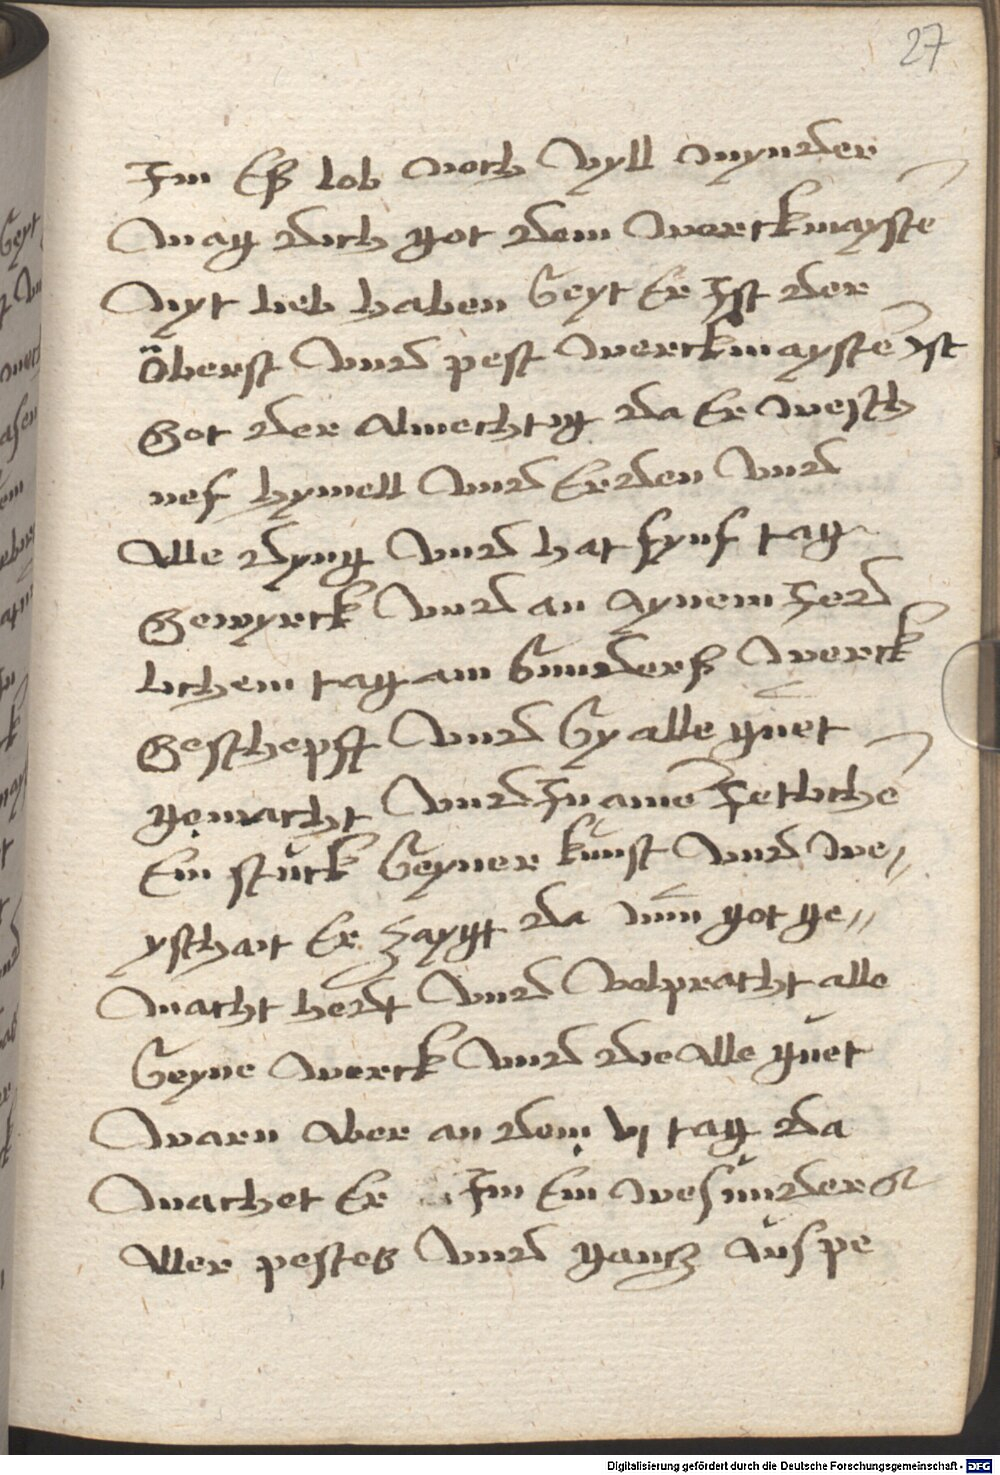 27
Im Eß lob noch vyll mynder
Mag dich got dem werckmayste
Nyt lieb haben seyt Er Ist der
Öberst vnd pest werckmayste yst
Got der almechtig da Er
hymell vnd Erden vnd
Alle dyng vnd hat fynf tag
Gewyrck vnd an aynem Jed
lichem tag am sunderß werck
Geschepft vnd sy alle guet
gemacht vnd In ame Jetliche
Ein stuck seyner kunst vnd we//
yschait Er zaygt da nun got ge//
macht hedt vnd volpracht alle
seyne werck vnd die alle guet
warn aber an dem vj tag da
machet Er Im Ein wesunders
Aller pestes vnd gantz auspe
Digitalisierung gefördert durch die Deutsche Forschungsgemeinschaft - DFG